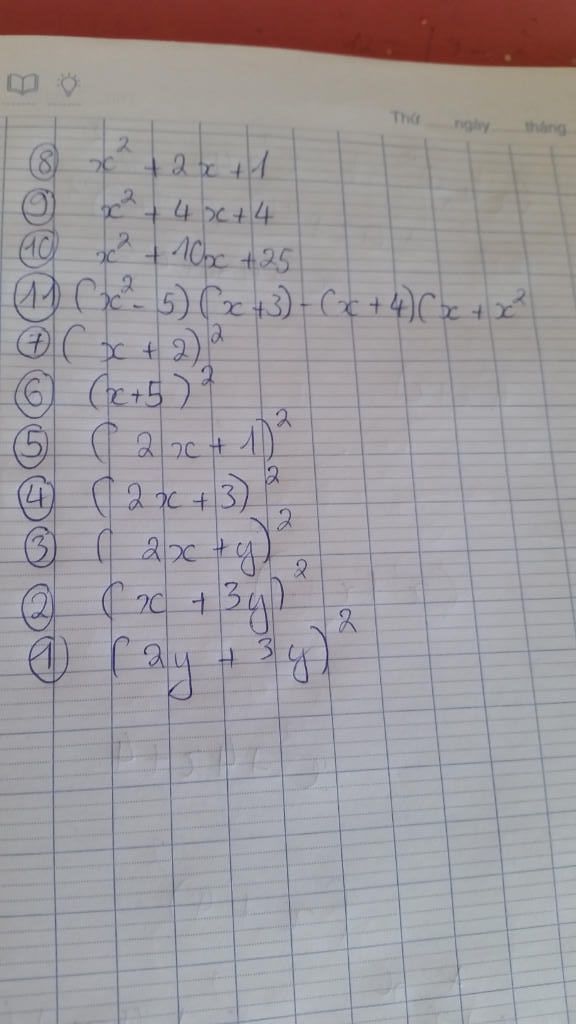 Thứ ngày tháng
⑧ x² + 2x + 1
⑨ x² + 4x + 4
⑩ x² + 10x + 25
⑪ (x² - 5)(x + 3) - (x + 4)(x + x²
⑦ (x + 2)²
⑥ (x + 5)²
⑤ (2x + 1)²
④ (2x + 3)²
③ (2x + y)²
② (x + 3y)²
① (2y + 3y)²